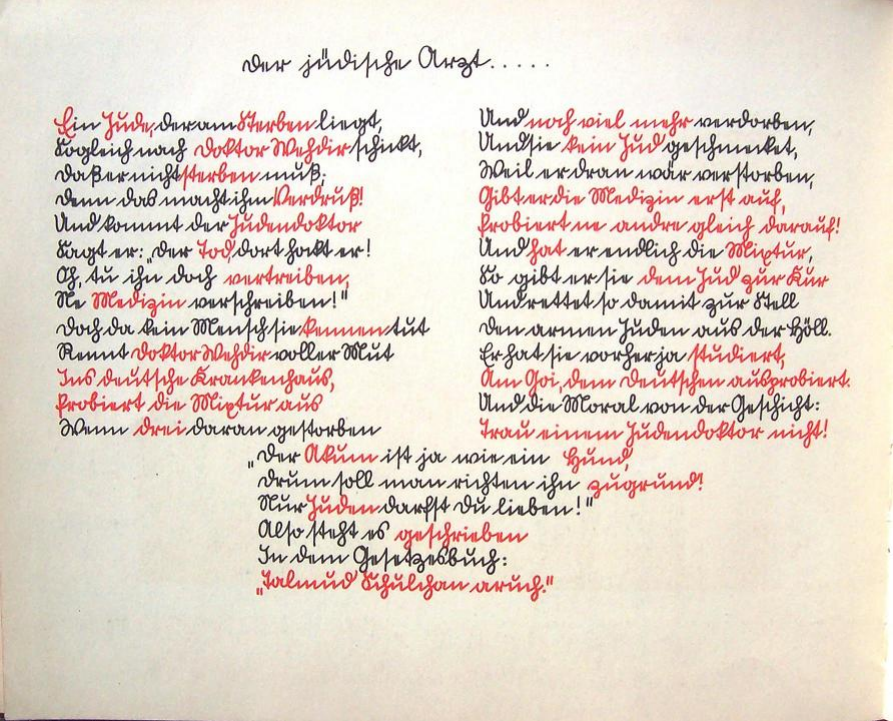 Der jüdische Arzt.....
Ein Jude, der am Sterben liegt,
Sogleich nach Doktor Wehdir schickt,
Daß er nicht sterben muß;
Denn das macht ihm Verdruß!
Und kommt der Judendoktor
Sagt er: „Der Tod, dort hockt er!
Och, tu ihn doch vertreiben,
Ne Medizin verschreiben!"
Doch da kein Mensch sie kennen tut
Rennt Doktor Wehdir voller Mut
Ins deutsche Krankenhaus,
Probiert die Mixtur aus
Wenn drei daran gestorben
Und noch viel mehr verdorben,
Und sie kein Jud geschmecket,
Weil er dran wär verstorben,
Gibt er die Medizin erst auf,
Probiert ne andre gleich darauf!
Und hat er endlich die Mixtur,
So gibt er sie dem Jud zur Kur
Und rettet so damit zur Stell
Den armen Juden aus der Höll.
Er hat sie vorher ja studiert,
Am Goi, dem Deutschen ausprobiert.
Und die Moral von der Geschicht:
Trau einem Judendoktor nicht!
„Der Akum ist ja wie ein Hund,
Drum soll man richten ihn zugrund!
Nur Juden darfst Du lieben!"
Also steht es geschrieben
In dem Gesetzesbuch:
„Talmud Schulchan aruch."